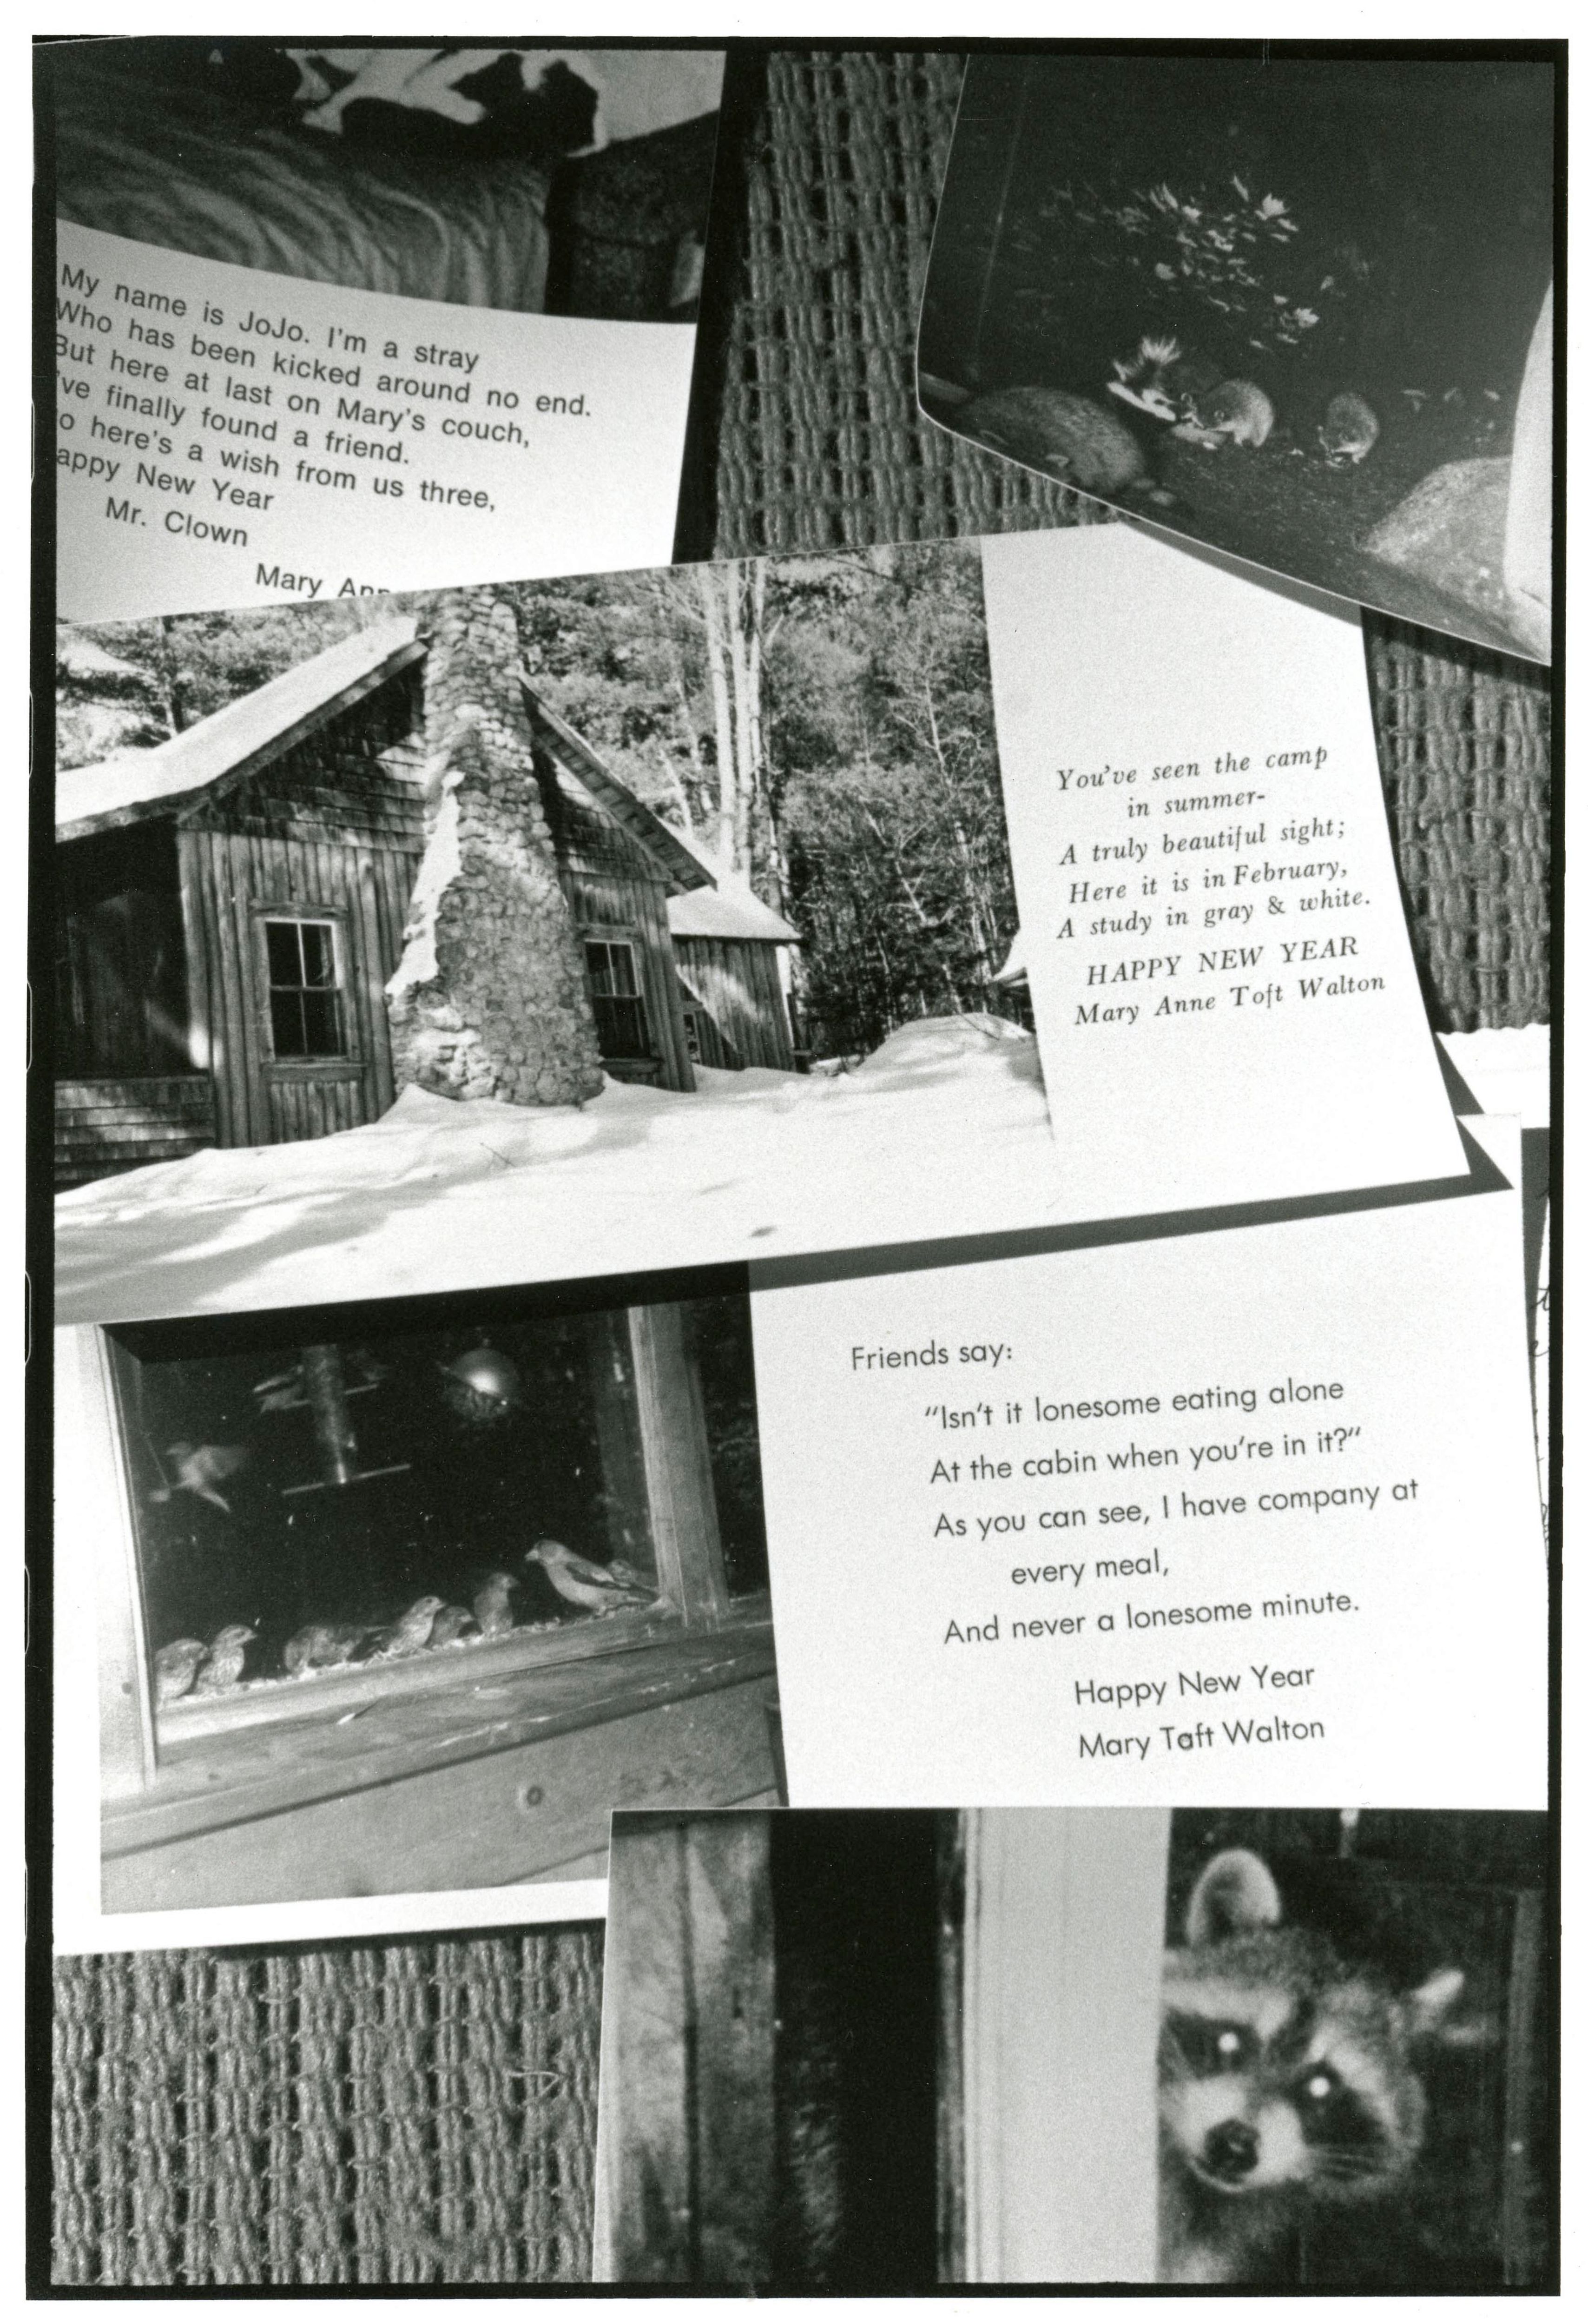 My name is JoJo. I'm a stray
Who has been kicked around no end.
But here at last on Mary's couch,
've finally found a friend.
o here's a wish from us three,
appy New Year
Mr. Clown
Mary Ann
You've seen the camp
in summer-
A truly beautiful sight;
Here it is in February,
A study in gray & white.
HAPPY NEW YEAR
Mary Anne Toft Walton
Friends say:
"Isn't it lonesome eating alone
At the cabin when you're in it?"
As you can see, I have company at
every meal,
And never a lonesome minute.
Happy New Year
Mary Taft Walton